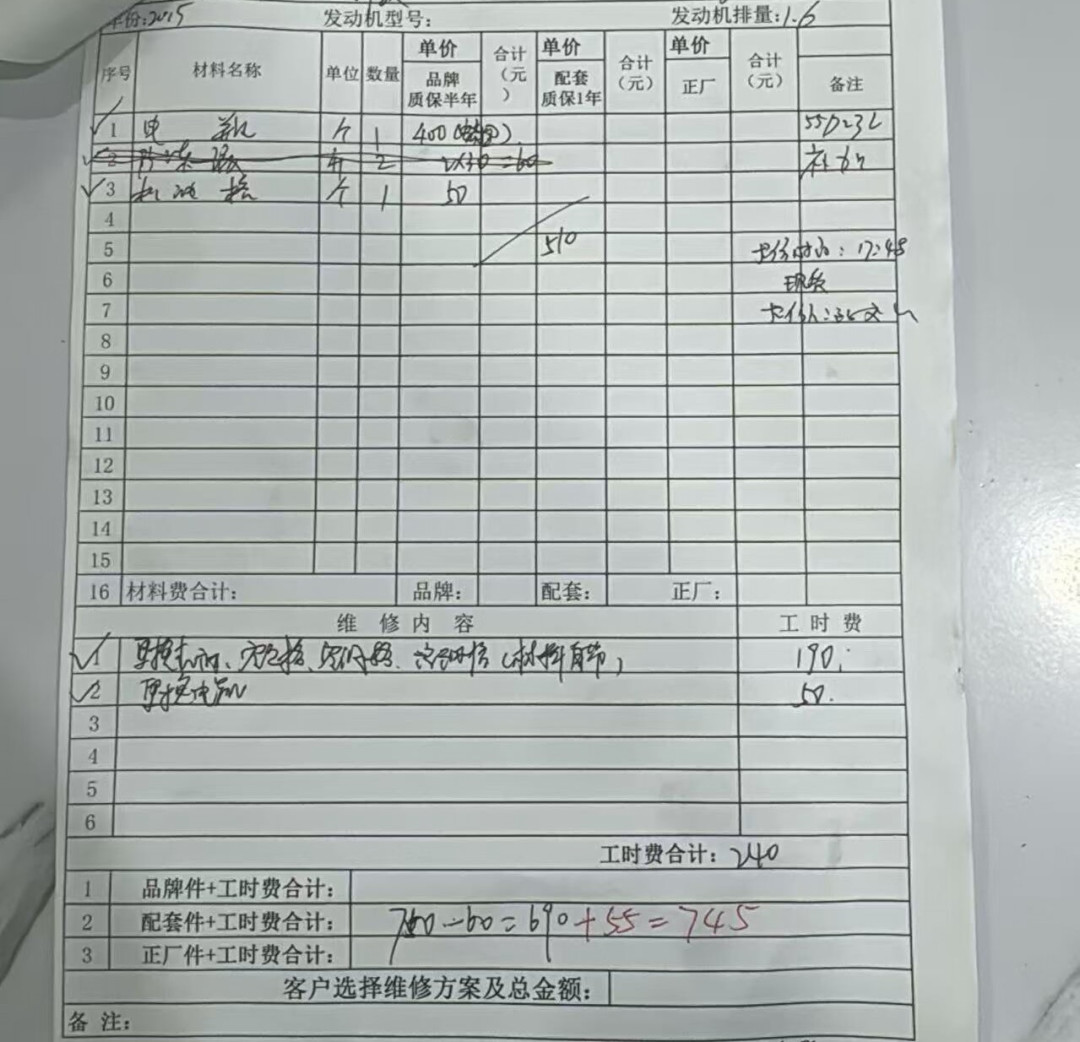 年份:2015 发动机型号: 发动机排量:1.6
序号 材料名称 单位 数量 单价 品牌 质保半年 合计（元） 单价 配套 质保1年 合计（元） 单价 正厂 合计（元） 备注
1 电瓶 个 1 400 55D23L
2 防冻液 2 2×30=60
3 机油格 个 1 50
4
5 510 17:48
6 现款
7
8
9
10
11
12
13
14
15
16 材料费合计: 品牌: 配套: 正厂:
维修内容 工时费
1 更换机油、空气格、空调格、(材料自带) 190.
2 更换电瓶 50.
3
4
5
6
工时费合计: 240
1 品牌件+工时费合计:
2 配套件+工时费合计: 750-60=690+55=745
3 正厂件+工时费合计:
客户选择维修方案及总金额:
备注: